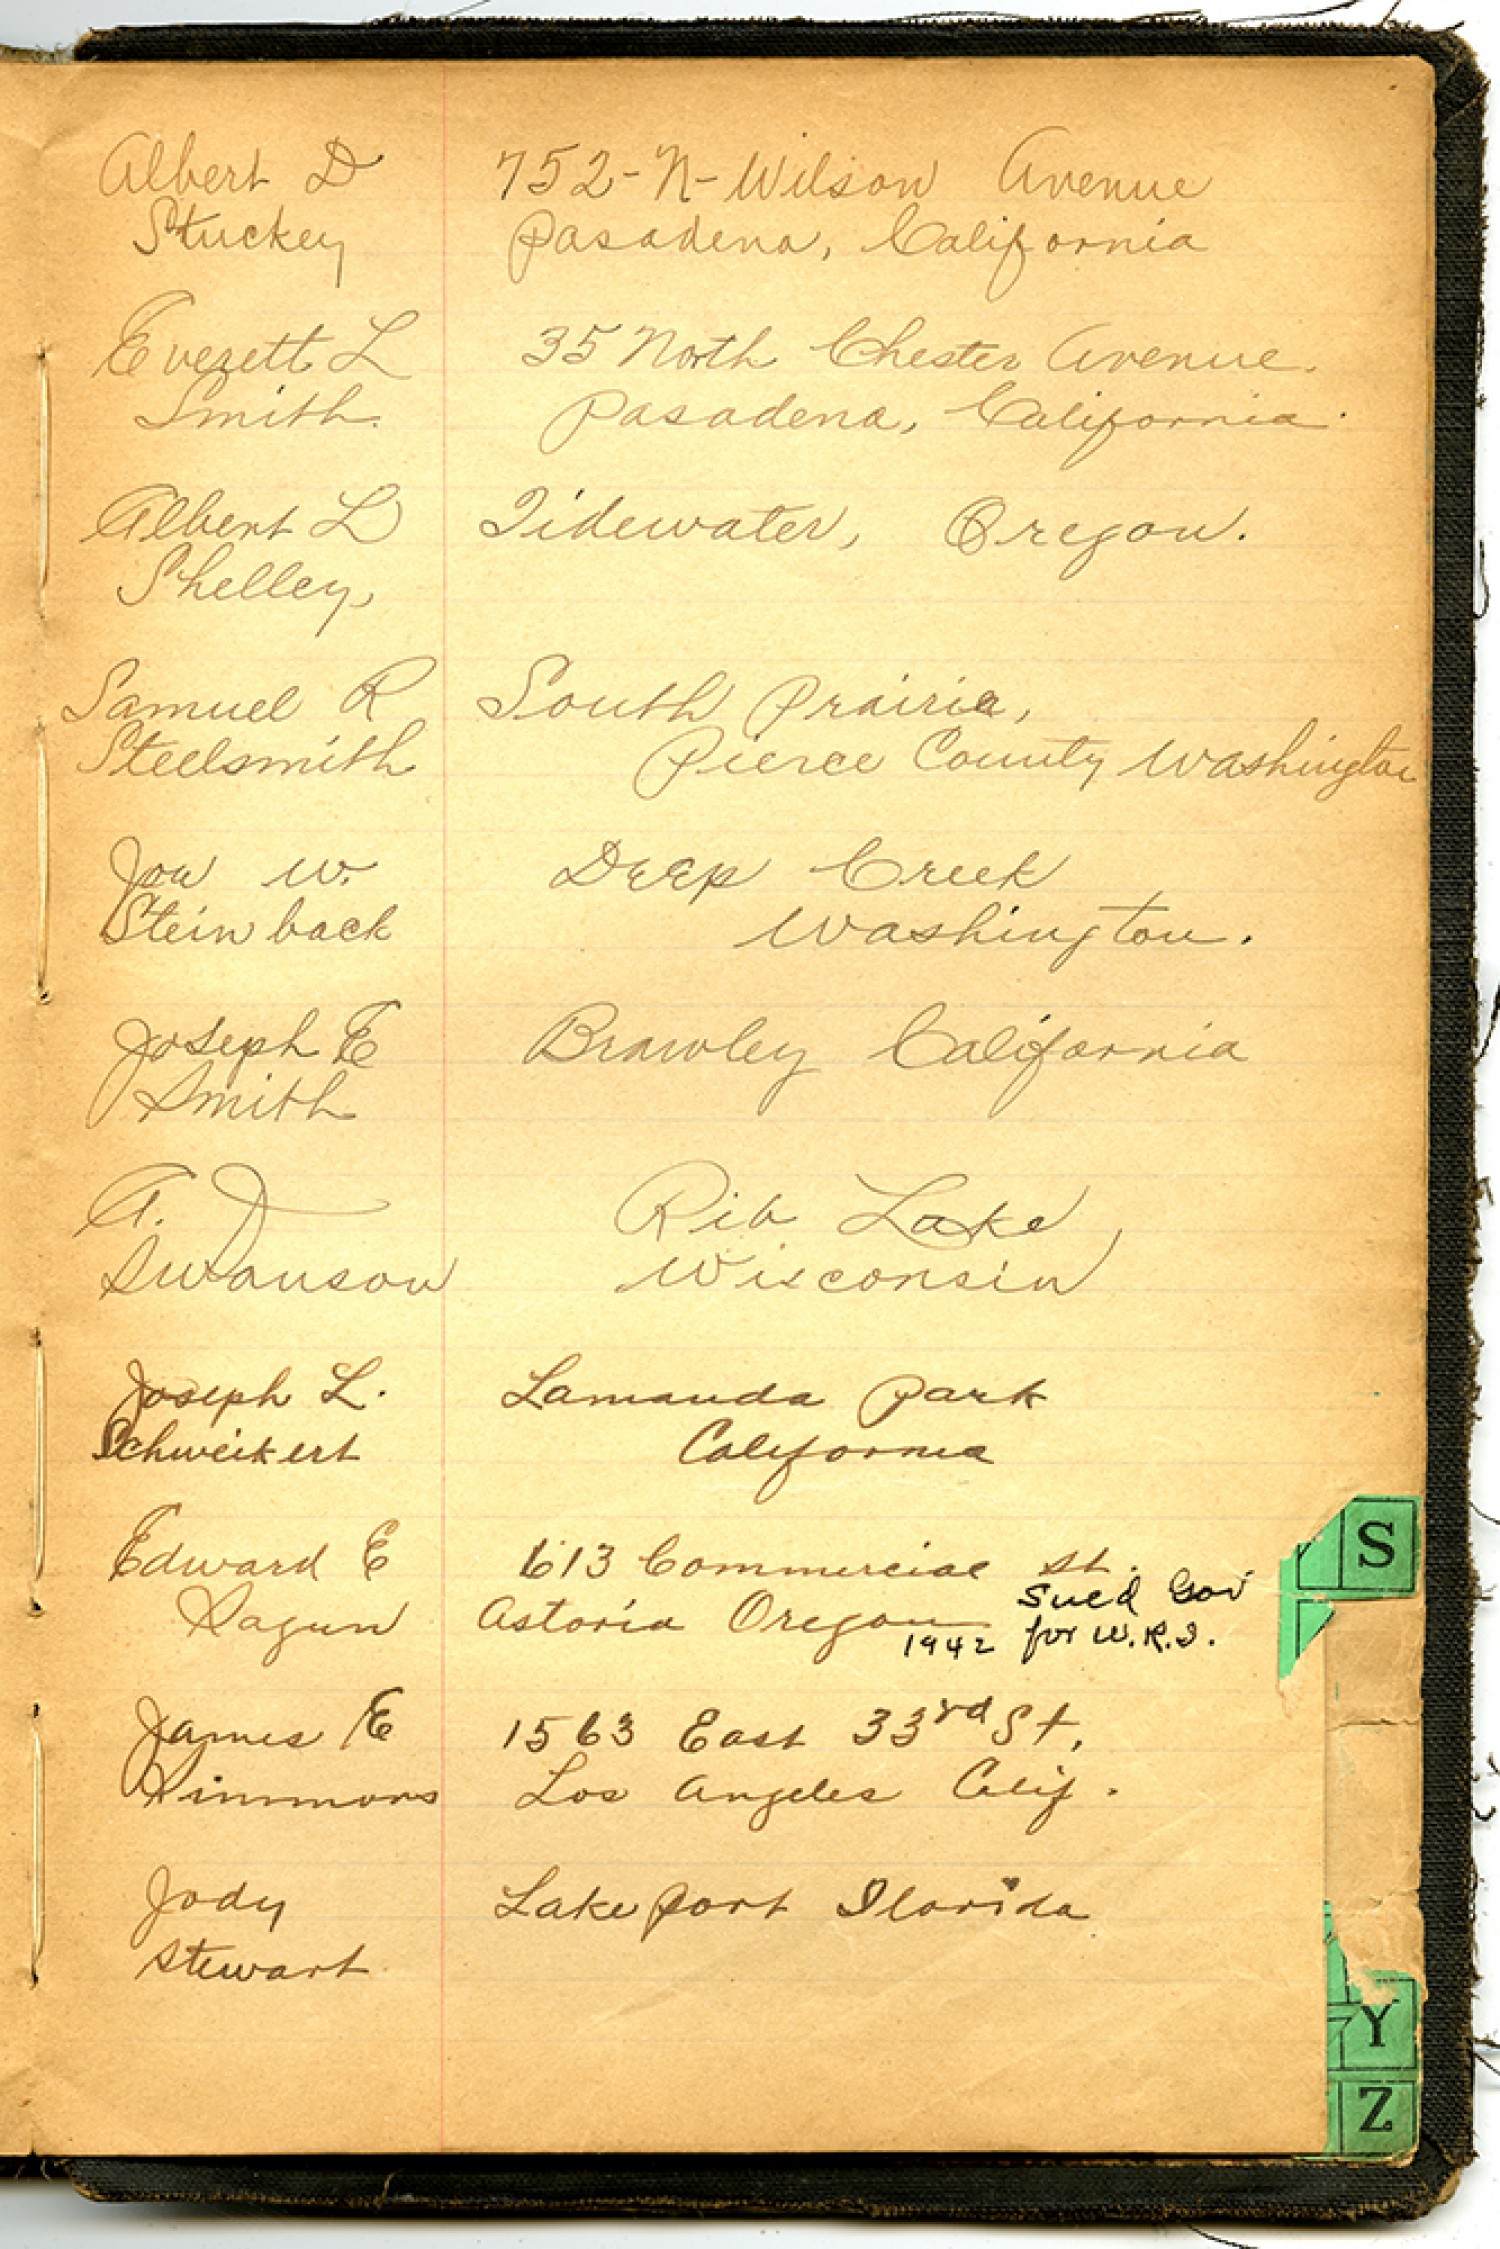 Albert D 752-N-Wilson Avenue
Stuckey Pasadena, California
Everett L 35 North Chester Avenue.
Smith. Pasadena, California.
Albert L Tidewater, Oregon.
Shelley,
Samuel R South Prairie,
Steelsmith Pierce County Washington
W. Deep Creek
Steinback Washington.
Joseph E Brawley California
Smith
A. Rib Lake,
Swanson Wisconsin
Joseph L. Lamanda Park
Schweikert California
Edward E 613 Commercial St.
Sagun Astoria Oregon
Sued Gov
1942 for W.R.I.
James E 1563 East 33rd St,
Simmons Los Angeles Calif.
Jody Lakeport Florida
Stewart
S
Y
Z